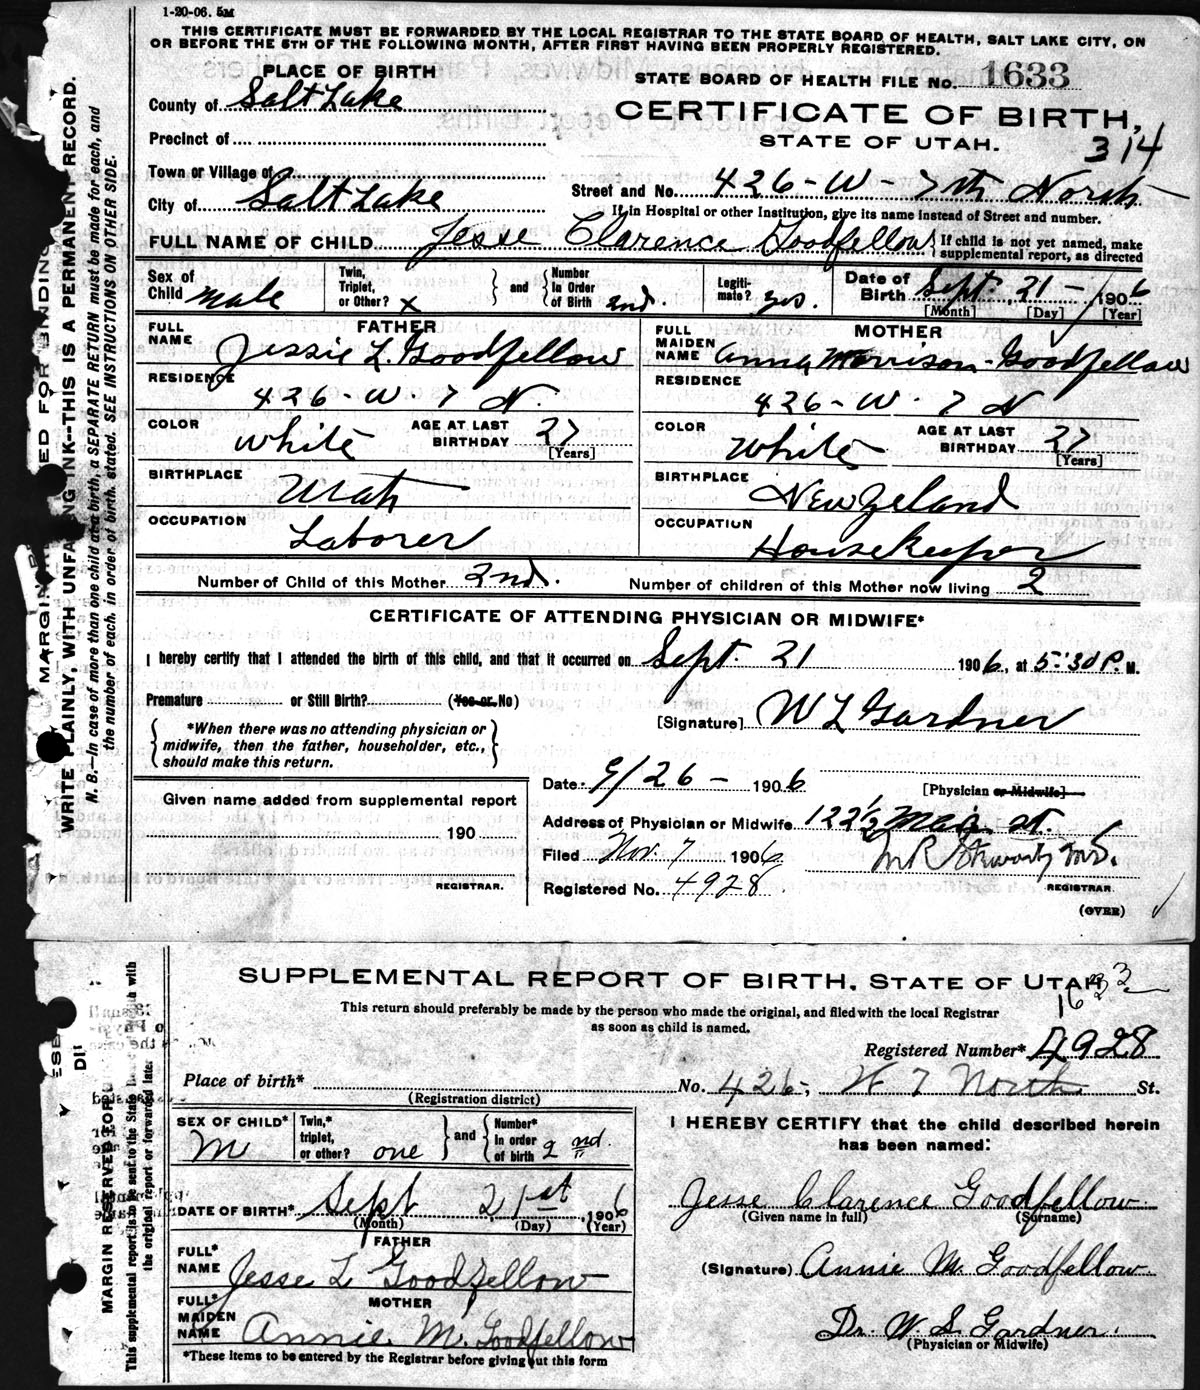 1-20-06. 5M
THIS CERTIFICATE MUST BE FORWARDED BY THE LOCAL REGISTRAR TO THE STATE BOARD OF HEALTH, SALT LAKE CITY, ON
OR BEFORE THE 5TH OF THE FOLLOWING MONTH, AFTER FIRST HAVING BEEN PROPERLY REGISTERED.
PLACE OF BIRTH
STATE BOARD OF HEALTH FILE No. 1633
County of Salt Lake
CERTIFICATE OF BIRTH,
Precinct of
STATE OF UTAH.
314
Town or Village of
Street and No. 426-W-7th North
City of Salt Lake
If in Hospital or other Institution, give its name instead of Street and number.
FULL NAME OF CHILD Jesse Clarence Goodfellow { If child is not yet named, make
supplemental report, as directed
Sex of Child male
Twin, Triplet, or Other? x } and { Number In Order of Birth 2nd.
Legiti-mate? yes.
Date of Birth Sept. 21 - 1906
[Month] [Day] [Year]
FATHER
FULL NAME Jessie L. Goodfellow
RESIDENCE 426-W. 7 N.
COLOR White
AGE AT LAST BIRTHDAY 27
[Years]
BIRTHPLACE Utah
OCCUPATION Laborer
MOTHER
FULL MAIDEN NAME Anna Morrison-Goodfellow
RESIDENCE 426-W. 7 N
COLOR White
AGE AT LAST BIRTHDAY 27
[Years]
BIRTHPLACE New Zeland
OCCUPATION Housekeeper
Number of Child of this Mother 2nd.
Number of children of this Mother now living 2
CERTIFICATE OF ATTENDING PHYSICIAN OR MIDWIFE*
I hereby certify that I attended the birth of this child, and that it occurred on Sept. 21 1906, at 5:30 P. M.
Premature or Still Birth? (Yes or No)
[Signature] W L Gardner
{ *When there was no attending physician or
midwife, then the father, householder, etc.,
should make this return. }
Date 9/26- 1906
[Physician or Midwife]
Given name added from supplemental report
190
REGISTRAR.
Address of Physician or Midwife 122 1/2 Main st.
Filed Nov. 7 1906
M R Stewart M.D.
REGISTRAR.
Registered No. 4928
(OVER)
MARGIN RESERVED FOR BINDING
WRITE PLAINLY, WITH UNFADING INK--THIS IS A PERMANENT RECORD.
N. B.--In case of more than one child at a birth, a SEPARATE RETURN must be made for each, and
the number of each, in order of birth, stated. SEE INSTRUCTIONS ON OTHER SIDE.
SUPPLEMENTAL REPORT OF BIRTH, STATE OF UTAH
1633
This return should preferably be made by the person who made the original, and filed with the local Registrar
as soon as child is named.
Registered Number* 4928
Place of birth* No. 426, W 7 North St.
(Registration district)
SEX OF CHILD* M
Twin,* triplet, or other? one } and { Number* In order of birth 2nd.
I HEREBY CERTIFY that the child described herein
has been named:
DATE OF BIRTH* Sept 21st, 1906
(Month) (Day) (Year)
Jesse Clarence Goodfellow
(Given name in full) (Surname)
FATHER
FULL* NAME Jesse L Goodfellow
(Signature) Annie M. Goodfellow
MOTHER
FULL* MAIDEN NAME Annie M. Goodfellow
Dr. W. S. Gardner.
(Physician or Midwife)
*These items to be entered by the Registrar before giving out this form
MARGIN RESERVED FOR
This supplemental report is to be sent to the State with
the original report or forwarded later